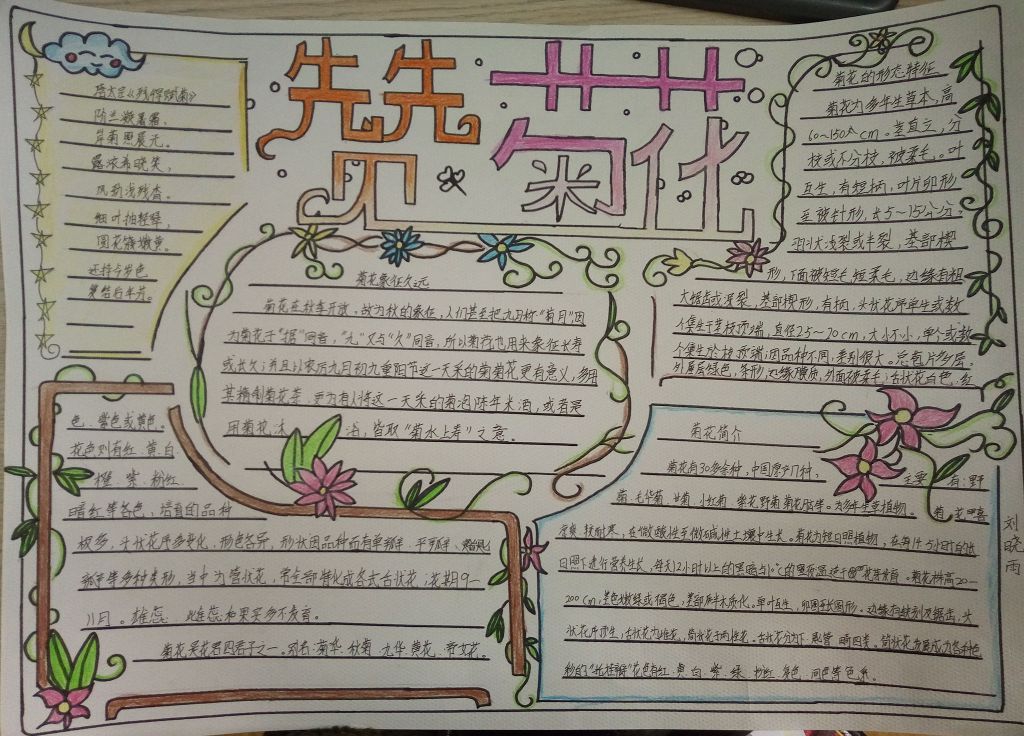 赞菊花
唐太宗《残菊赋菊》
阶兰凝曙霜，
岸菊照晨光。
露浓希晓笑，
风劲浅残香。
细叶抽轻翠，
圆花簇嫩黄。
还持今岁色
复结后年芳。
菊花象征久远
菊花在秋季开放，故为秋的象征，人们甚至把九月称“菊月”，因
为菊花于“据”同音，“九”又与“久”同音，所以菊花也用来象征长寿
或长久；并且以农历九月初九重阳节这一天采的菊菊花更有意义，多用
其精制菊花茶，更为有人将这一天采的菊泡陈年米酒，或者是
用菊花沐浴，皆取“菊水上寿”之意。
菊花的形态特征
菊花为多年生草本，高
60～150 cm。茎直立，分
枝或不分枝，被柔毛。叶
互生，有短柄，叶片卵形
至披针形，长5～15公分，
羽状浅裂或半裂，基部楔
形，下面被短毛短柔毛，边缘有粗
大锯齿或深裂，基部楔形，有柄，头状花序单生或数
个集生于茎枝顶端，直径2.5～20cm，大小不小，单个或数
个集生于枝顶端；因品种不同，差别很大。总苞片多层，
外层绿色，条形，边缘膜质，外面被柔毛；舌状花白色、红
色、紫色或黄色。
花色则有红、黄、白、
橙、紫、粉红、
暗红等各色，培育的品种
极多，头状花序多变化，形色各异，形状因品种而有单瓣、平瓣、匙
瓣等多种类形，当中为管状花，常全部特化成各式舌状花；花期9—
11月。雄蕊、雌蕊和果实多不发育。
菊花是花君四君子之一。别名：菊华、秋菊、九华、黄花、帝女花。
菊花简介
菊花有30多余种，中国原产17种，主要有：野
菊、毛华菊、甘菊、小红菊、紫花野菊、菊花脑等。为多年生草植物。菊花喜
凉爽、较耐寒，在微酸性至微碱性土壤中生长。菊花为短日照植物，在每14.5小时的长
日照下进行营养生长，每天12小时以上的黑暗与10℃的夜温适于花芽发育。菊花株高20—
200 cm，茎色嫩绿或褐色，基部半木质化。单叶互生，卵圆至长圆形。边缘有缺刻及锯齿，头
状花序顶生，舌状花为雌花，筒状花为两性花。舌状花分为下、匙、管、畸四类。筒状花发展成为各种色
彩的“托桂瓣”花色有红、黄、白、紫、绿、粉红、复色、间色等色系。
刘晓雨